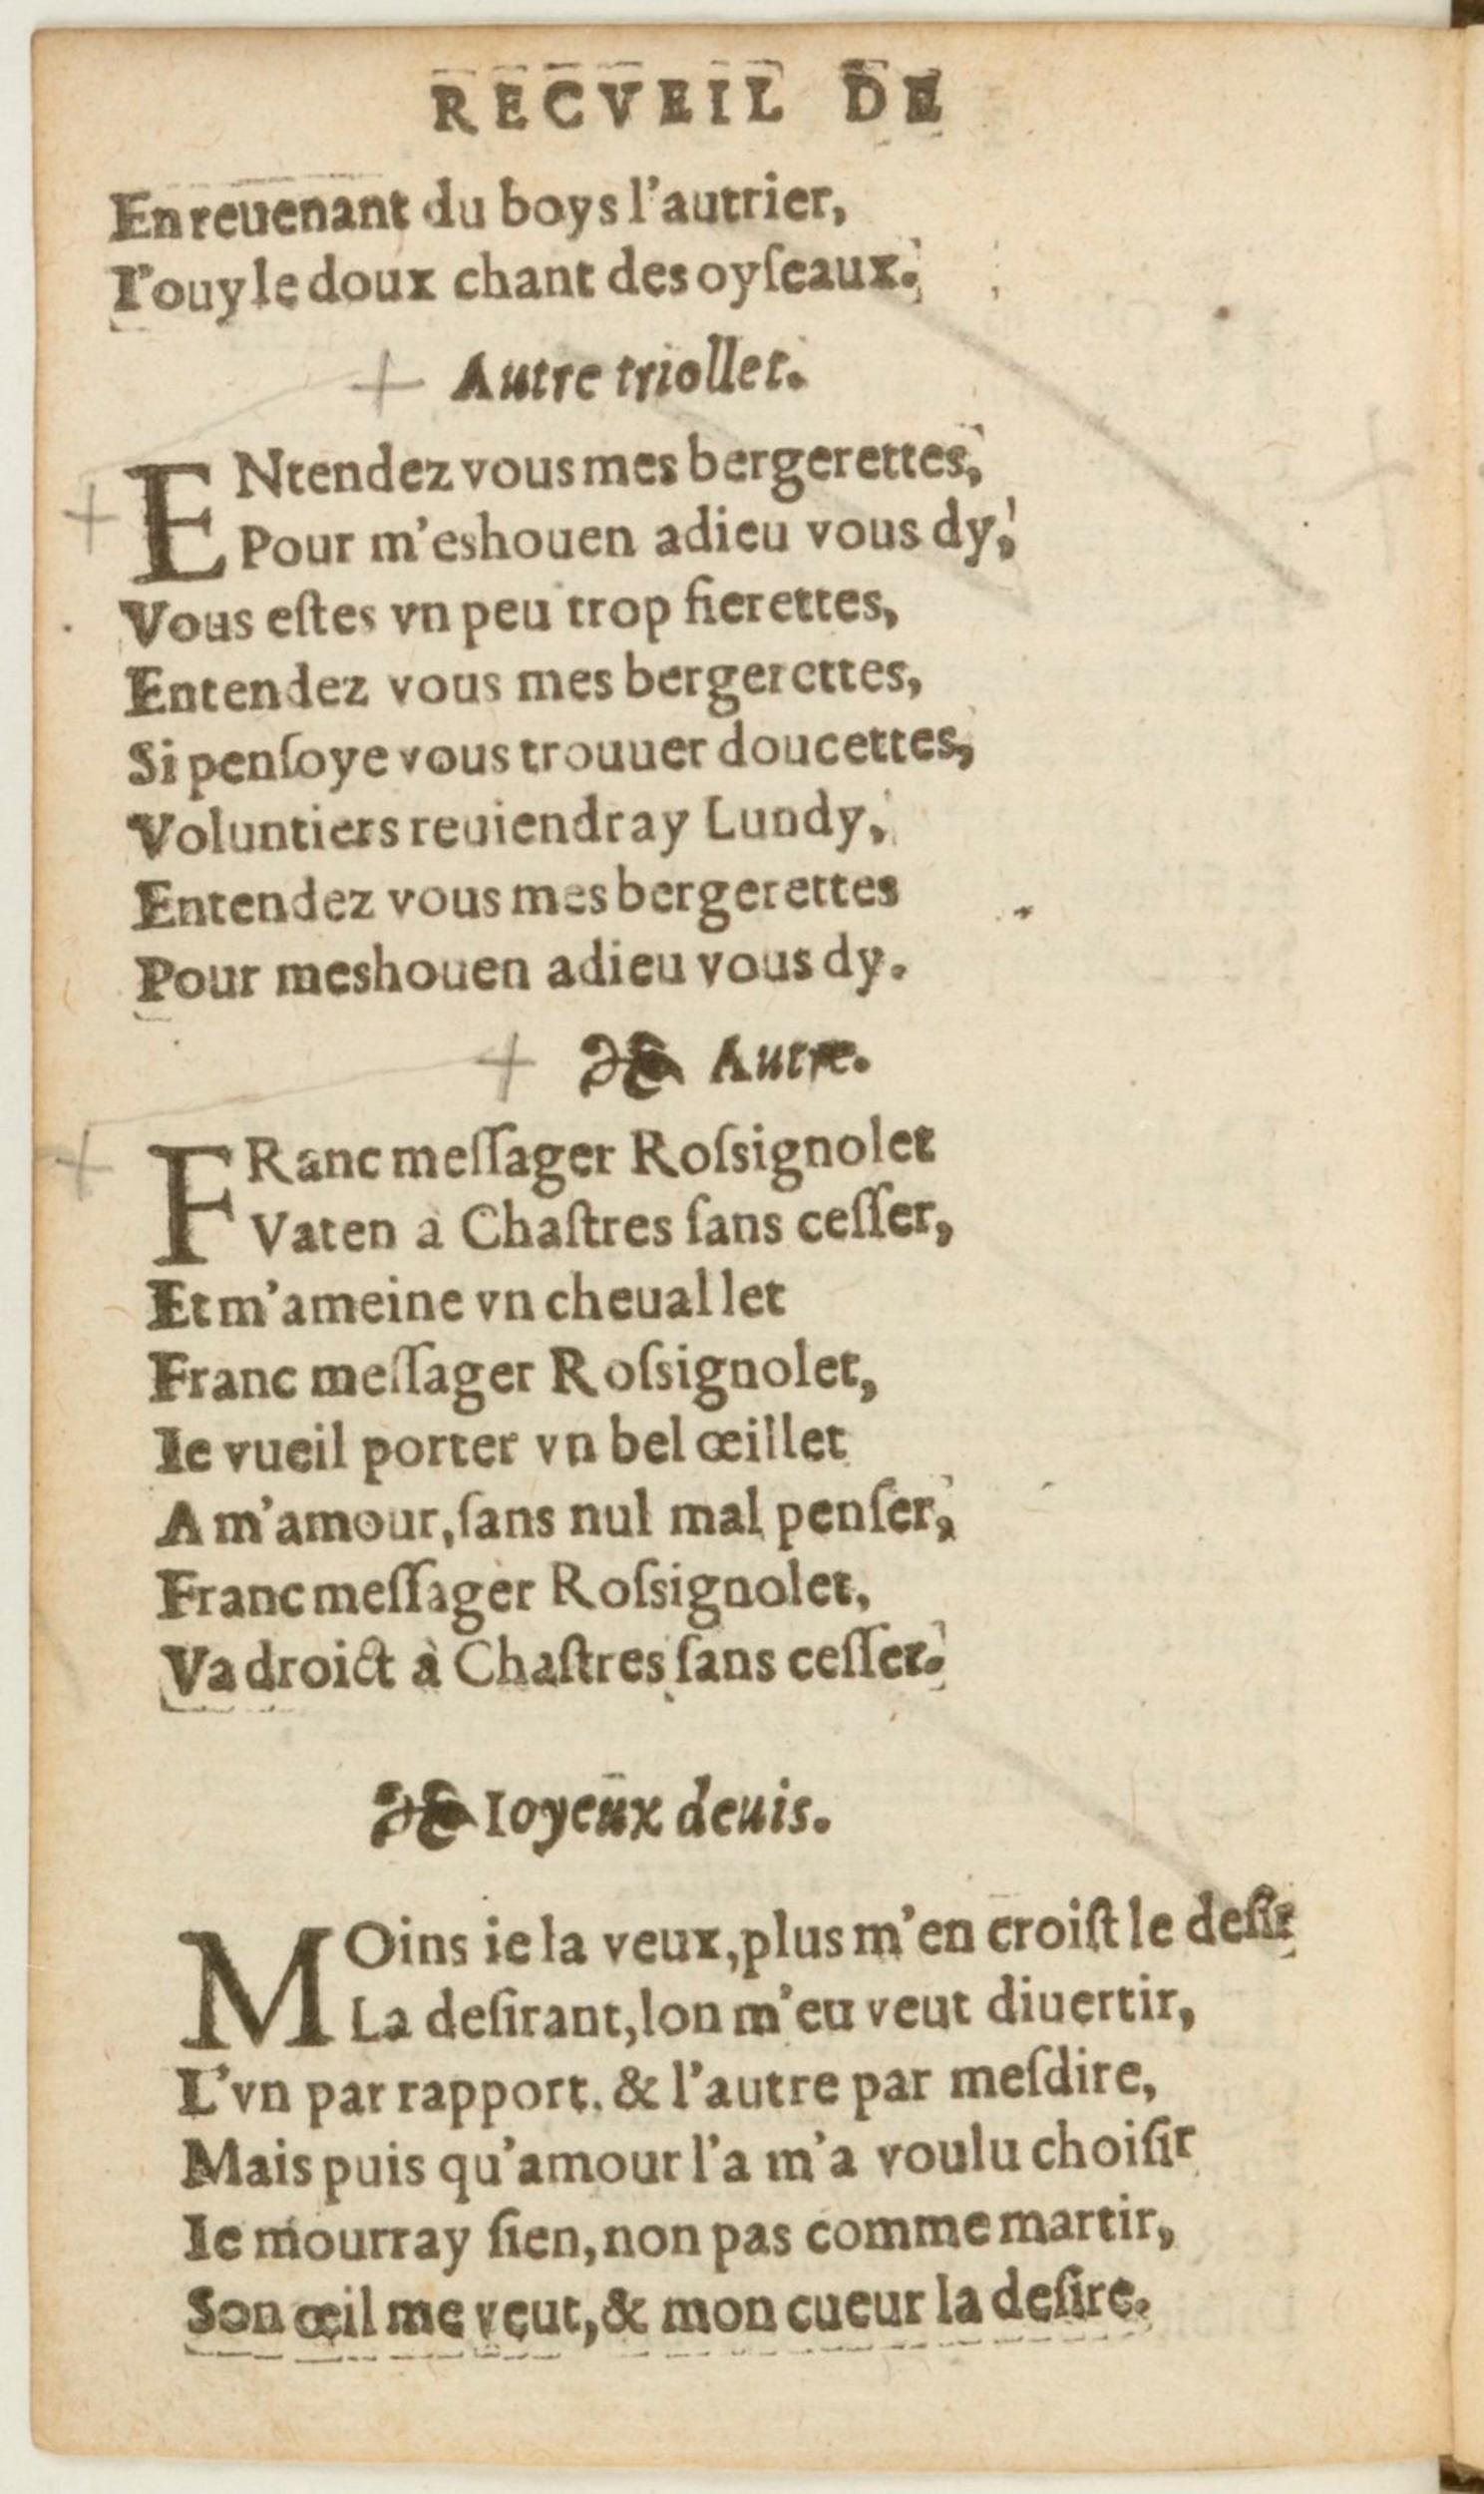 RECVEIL DE
En reuenant du boys l'autrier,
I'ouy le doux chant des oyſeaux.
Autre triollet.
ENtendez vous mes bergerettes,
Pour m'eshouen adieu vous dy,
Vous eſtes vn peu trop fierettes,
Entendez vous mes bergerettes,
Si penſoye vous trouuer doucettes,
Voluntiers reuiendray Lundy,
Entendez vous mes bergerettes
Pour meshouen adieu vous dy.
❧ Autre.
FRanc meſſager Roſsignolet
Vaten a Chaſtres ſans ceſſer,
Et m'ameine vn cheuallet
Franc meſſager Roſsignolet,
Ie vueil porter vn bel œillet
A m'amour, ſans nul mal penſer,
Franc meſſager Roſsignolet,
Va droict à Chaſtres ſans ceſſer.
❧ Ioyeux deuis.
MOins ie la veux, plus m'en croiſt le deſir
La deſirant, lon m'eu veut diuertir,
L'vn par rapport. & l'autre par meſdire,
Mais puis qu'amour l'a m'a voulu choiſir
Ie mourray ſien, non pas comme martir,
Son œil me veut, & mon cueur la deſire.